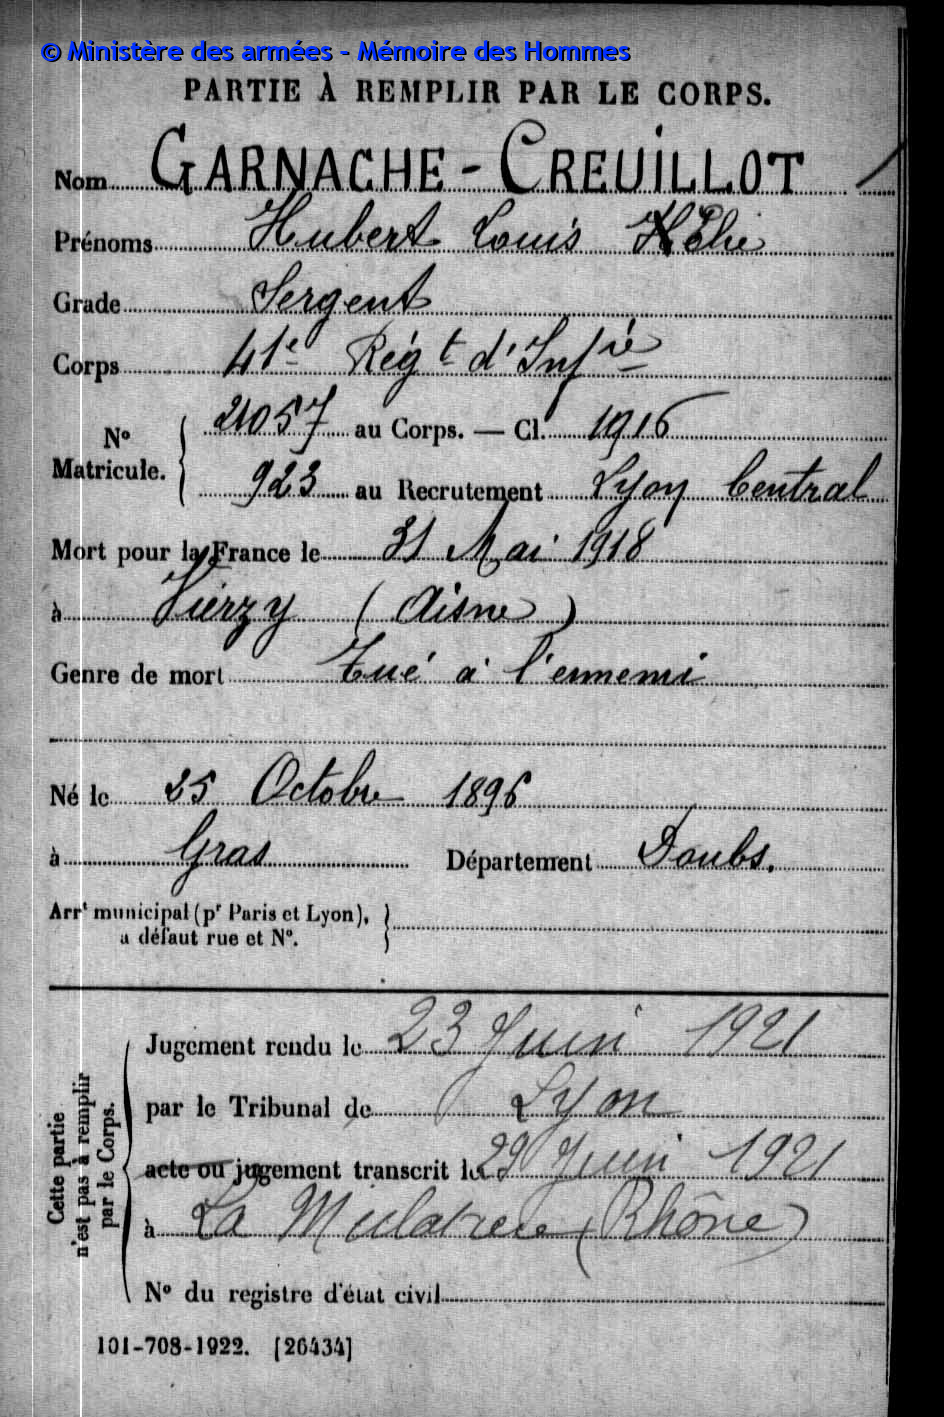 © Ministère des armées - Mémoire des Hommes
PARTIE À REMPLIR PAR LE CORPS.
Nom GARNACHE-CREUILLOT
Prénoms Hubert Louis Hélie
Grade Sergent
Corps 41e Régt d'Infie
No Matricule. 21057 au Corps. — Cl. 1916
923 au Recrutement Lyon Central
Mort pour la France le 31 Mai 1918
à Vierzy (Aisne)
Genre de mort Tué à l'ennemi
Né le 25 Octobre 1896
à Gras Département Doubs.
Arrt municipal (pr Paris et Lyon),
à défaut rue et No.
Cette partie
n'est pas à remplir
par le Corps.
Jugement rendu le 23 Juin 1921
par le Tribunal de Lyon
acte ou jugement transcrit le 29 Juin 1921
à La Mulatière (Rhône)
No du registre d'état civil
101-708-1922. [26434]